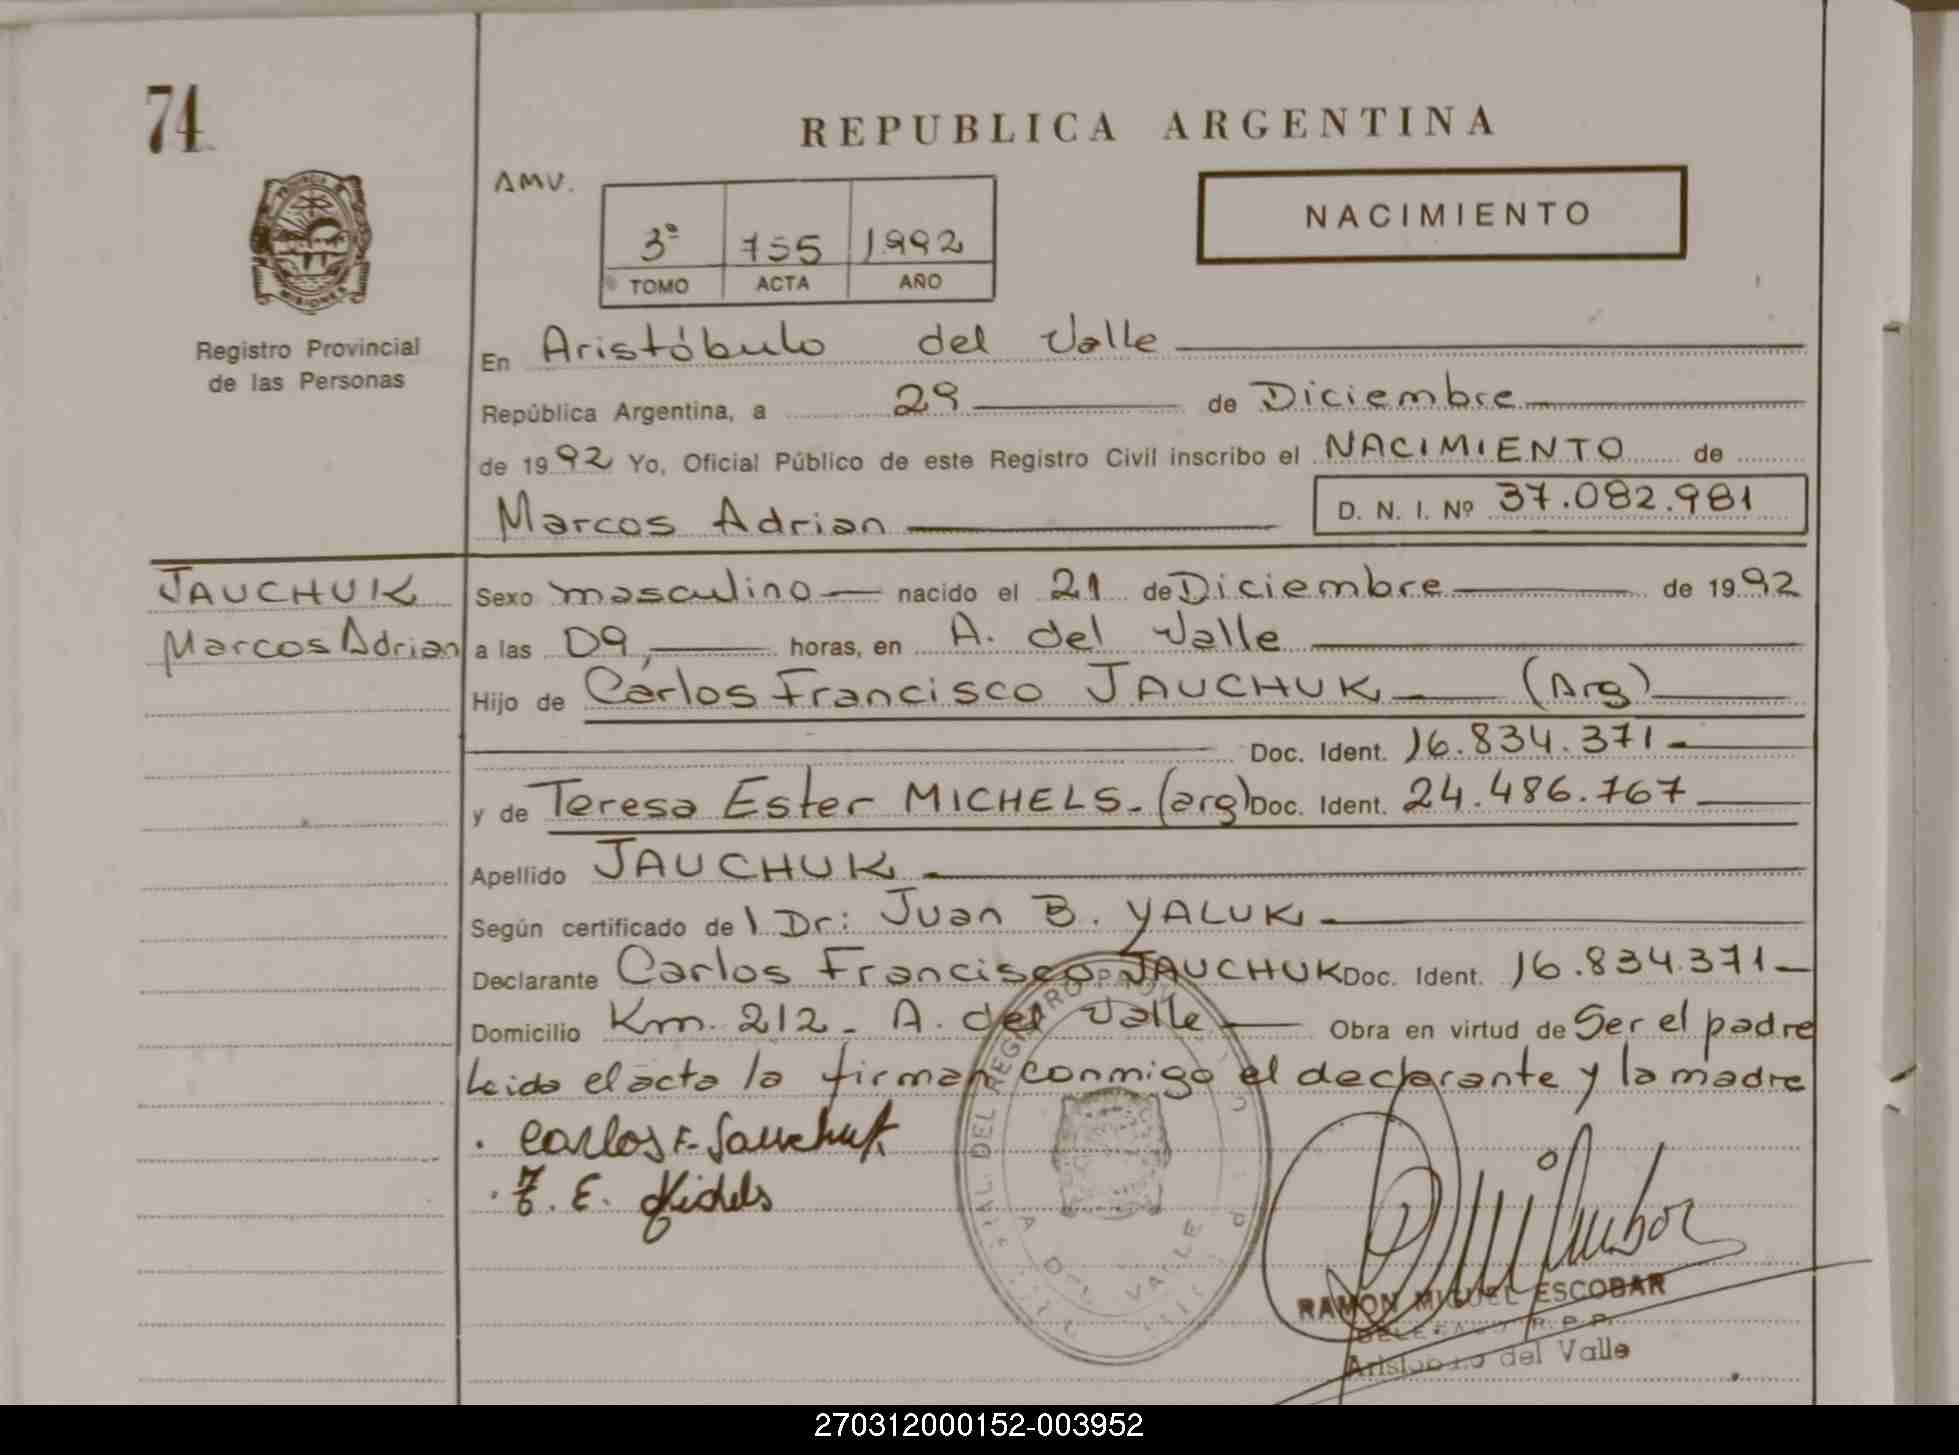 74
REPUBLICA ARGENTINA
AMV.
3º 755 1992
TOMO ACTA AÑO
NACIMIENTO
PROVINCIA DE
MISIONES
Registro Provincial
de las Personas
En Aristóbulo del Valle
República Argentina, a 29 de Diciembre
de 1992 Yo, Oficial Público de este Registro Civil inscribo el NACIMIENTO de
Marcos Adrian D. N. I. Nº 37.082.981
JAUCHUK
Marcos Adrian
Sexo masculino nacido el 21 de Diciembre de 1992
a las 09, horas, en A. del Valle
Hijo de Carlos Francisco JAUCHUK (Arg)
Doc. Ident. 16.834.371-
y de Teresa Ester MICHELS- (arg) Doc. Ident. 24.486.767
Apellido JAUCHUK
Según certificado de l Dr: Juan B. YALUK
Declarante Carlos Francisco JAUCHUK Doc. Ident. 16.834.371-
Domicilio Km. 212- A. del Valle Obra en virtud de Ser el padre
Leida el acta la firman conmigo el declarante y la madre
. Carlos F. Jauchuk
. T. E. Michels
DEL REGISTRO
A DEL VALLE
RAMÓN MIGUEL ESCOBAR
DELEGADO R.P.P.
Aristobulo del Valle
270312000152-003952